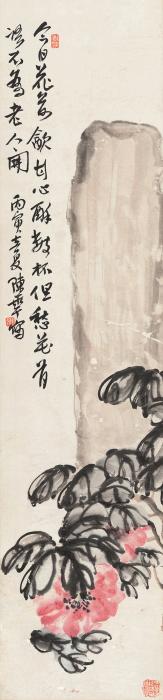 今日花前飲甘心醉數杯但愁花有
語不為老人開
丙寅夏陳年寫